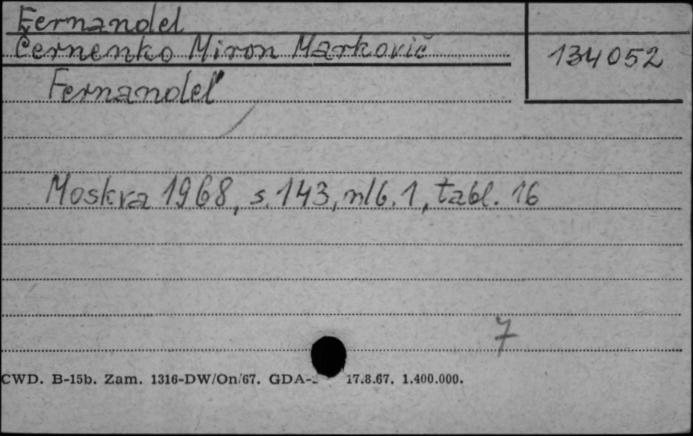 Fernandel
Černenko Miron Markovič
134052
Fernandel'
Moskva 1968, s. 143, nlb. 1, tabl. 16
7
CWD. B-15b. Zam. 1316-DW/On/67. GDA- 17.8.67. 1.400.000.